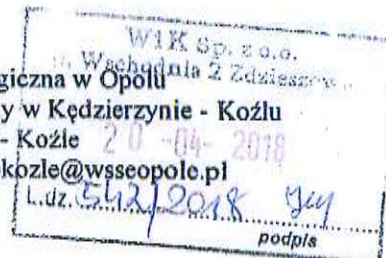 WIK Sp. z o.o.
Wschodnia 2 Zdzieszow
giczna w Opolu
y w Kędzierzynie - Koźlu
- Koźle
20 -04- 2018
kozle@wsseopole.pl
L.dz. 542/2018
podpis